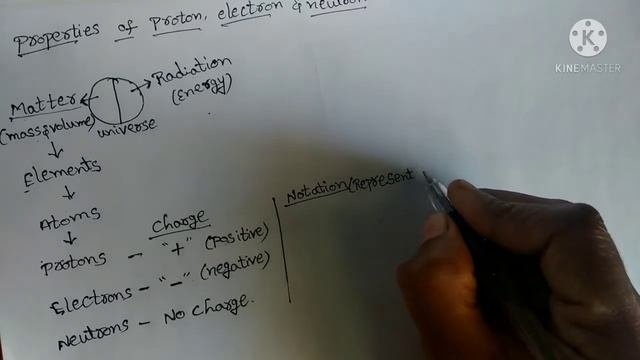 Properties of Proton, electron & neutron
Radiation
(Energy)
Matter
(mass & volume)
universe
Elements
Atoms
charge
Protons - "+" (Positive)
Electrons - "-" (negative)
Neutrons - No charge.
Notation (Represent
K
KINEMASTER